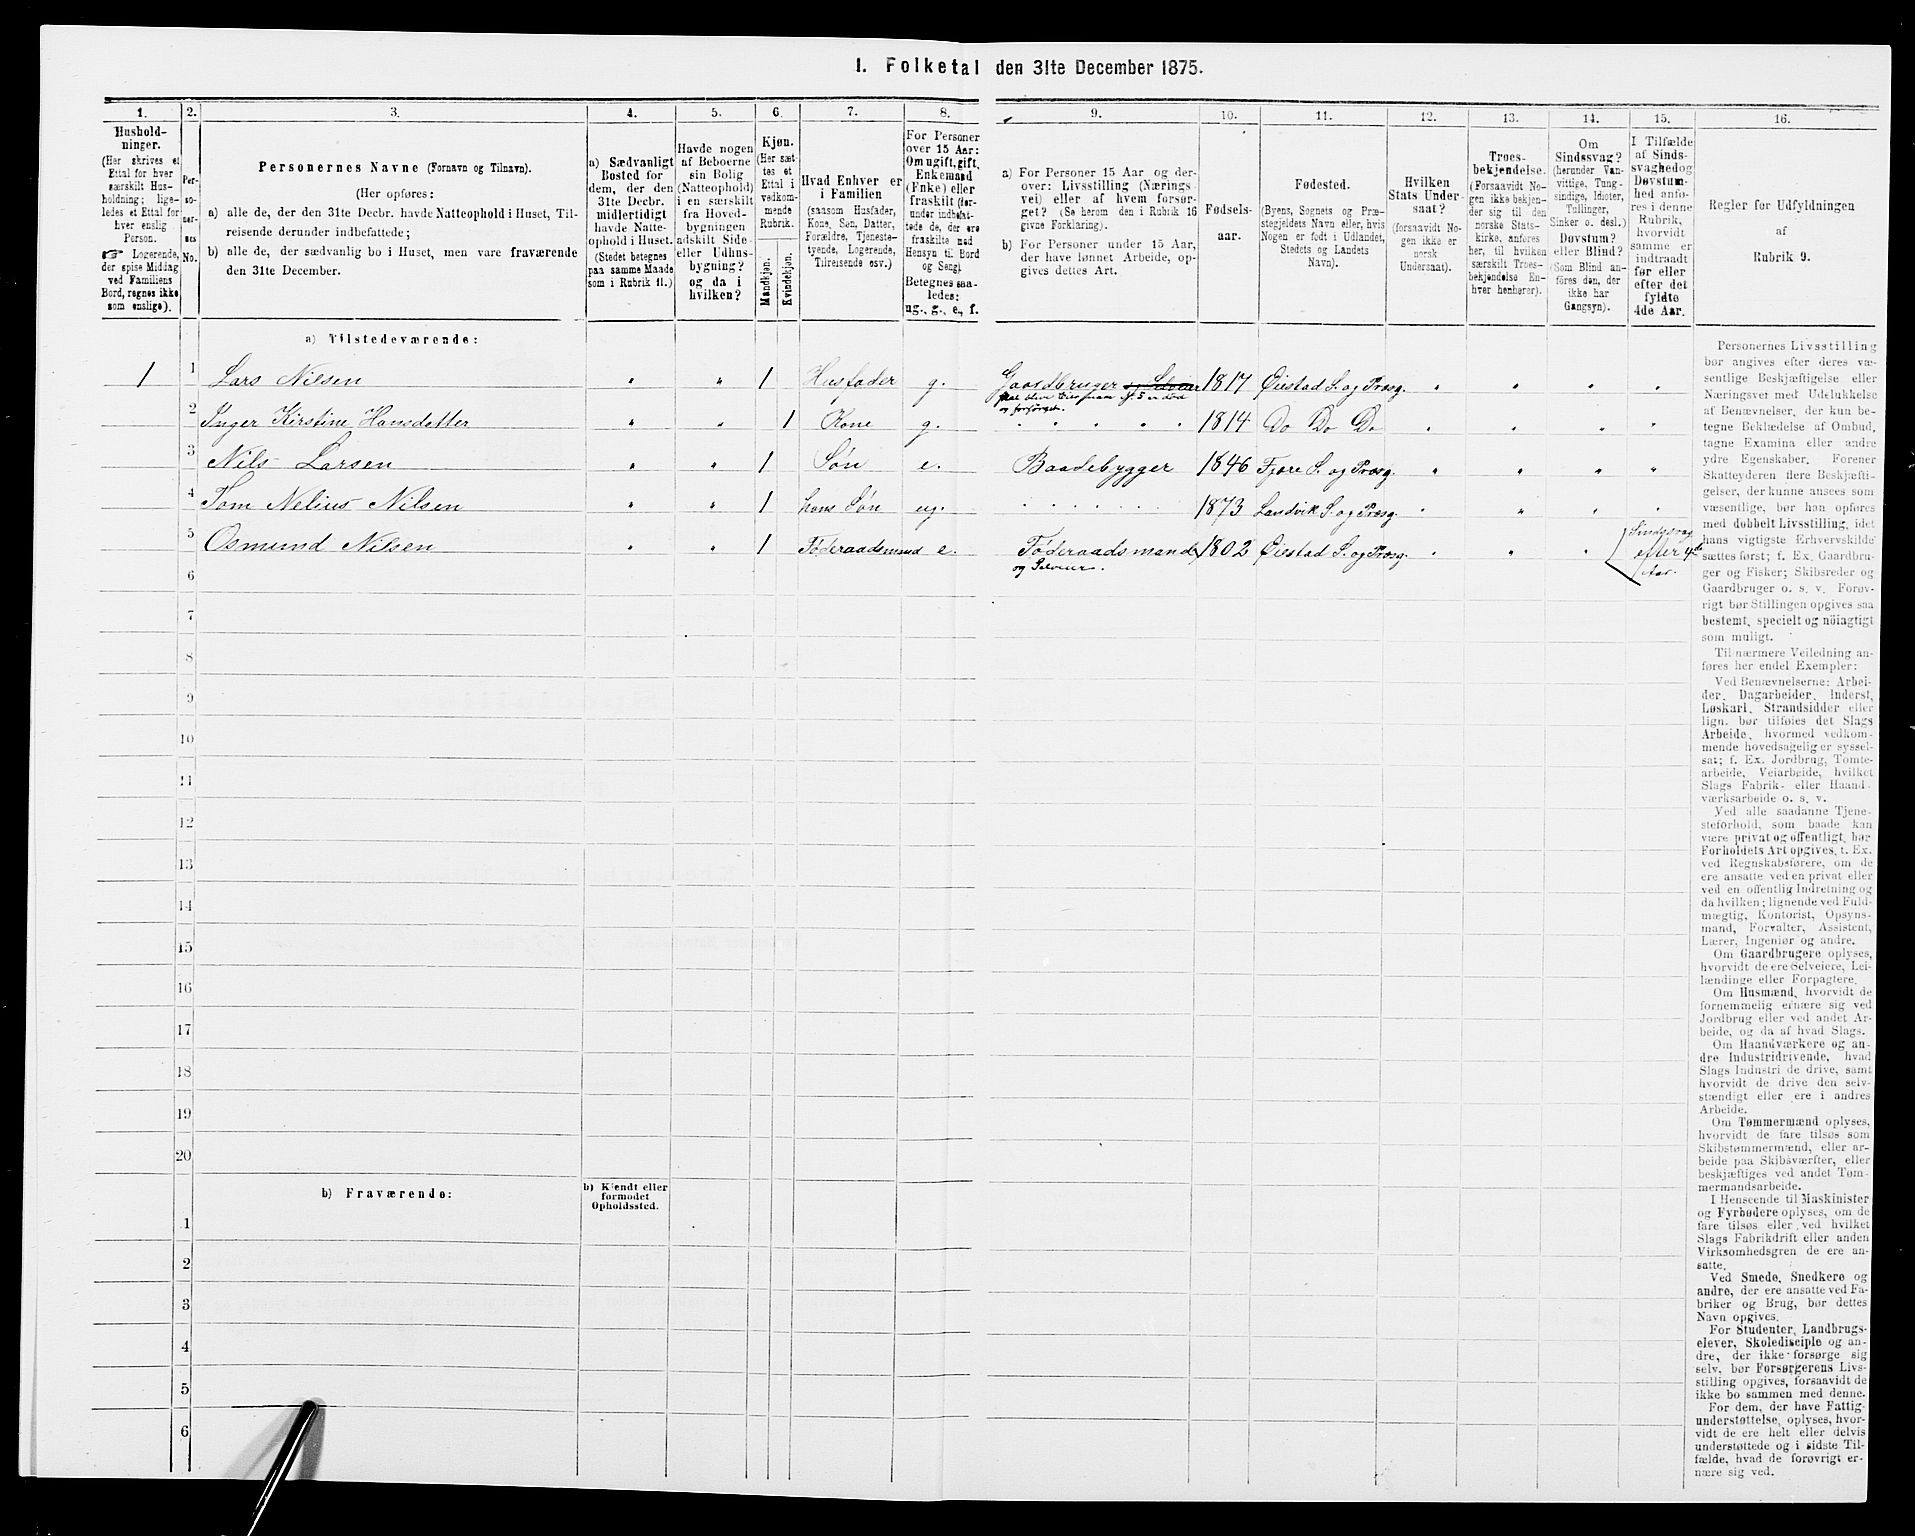 1. Folketal den 31te December 1875.
1. 2. 3. 4. 5. 6. 7. 8. 9. 10. 11. 12. 13. 14. 15. 16.
Hushold-
ninger.
(Her skrives et
Ettal for hver
særskilt Hus-
holdning; lige-
ledes et Ettal for
hver enslig
Person.
☞ Logerende,
der spise Middag
ved Familiens
Bord, regnes ikke
som enslige).
Per-
so-
ner-
nes
No.
Personernes Navne (Fornavn og Tilnavn).
(Her opføres:
a) alle de, der den 31te Decbr. havde Natteophold i Huset, Til-
reisende derunder indbefattede;
b) alle de, der sædvanlig bo i Huset, men vare fraværende
den 31te December.
a) Sædvanligt
Bosted for
dem, der den
31te Decbr.
midlertidigt
havde Natte-
ophold i Huset.
(Stedet betegnes
paa samme Maade
som i Rubrik 11.)
Havde nogen
af Beboerne
sin Bolig
(Natteophold)
i en særskilt
fra Hoved-
bygningen
adskilt Side-
eller Udhus-
bygning?
og da i
hvilken?
Kjøn.
(Her sæt-
tes et
Ettal i
vedkom-
mende
Rubrik.
Mandkjøn.
Kvindekjøn.
Hvad Enhver er
i Familien
(saasom Husfader,
Kone, Søn, Datter,
Forældre, Tjeneste-
tyende, Logerende,
Tilreisende osv.)
For Personer
over 15 Aar:
Om ugift, gift,
Enkemand
(Enke) eller
fraskilt (der-
under indbefat-
tede de, der ere
fraskilte med
Hensyn til Bord
og Seng).
Betegnes saa-
ledes:
ug., g., e., f.
a) For Personer 15 Aar og der-
over: Livsstilling (Nærings-
vei) eller af hvem forsør-
get? (Se herom den i Rubrik 16
givne Forklaring).
b) For Personer under 15 Aar,
der have lønnet Arbeide, op-
gives dettes Art.
Fødsels-
aar.
Fødested.
(Byens, Sognets og Præ-
stegjeldets Navn eller, hvis
Nogen er født i Udlandet,
Stedets og Landets
Navn).
Hvilken
Stats Under-
saat?
(forsaavidt No-
gen ikke er
norsk
Undersaat).
Troes-
bekjendelse.
(Forsaavidt No-
gen ikke bekjen-
der sig til den
norske Stats-
kirke, anføres
her, til hvilken
særskilt Troes-
bekjendelse En-
hver henhører).
Om
Sindssvag?
(herunder Van-
vittige, Tung-
sindige, Idioter,
Tullinger,
Sinker o. desl.)
Døvstum?
eller Blind?
(Som Blind an-
føres den, der
ikke har
Gangsyn).
I Tilfælde
af Sinds-
svaghed og
Døvstum-
hed anfø-
res i denne
Rubrik,
hvorvidt
samme er
indtraadt
før eller
efter det
fyldte
4de Aar.
Regler for Udfyldningen
af
Rubrik 9.
a) Tilstedeværende:
1 1 Lars Nilsen " " 1 Husfader g. Gaardbruger og Selveier 1817 Øiestad S. og Præsg. " " " "
og forsørget.
2 Inger Kirstine Hansdatter " " 1 Kone g. " " " " " 1814 Do Do Do " " " "
3 Nils Larsen " " 1 Søn e. Baadebygger 1846 Fjære S. og Præsg. " " " "
4 Tom Nelius Nilsen " " 1 hans Søn ug. 1873 Landvik S. og Præsg. " " " "
5 Osmund Nilsen " " 1 Føderaadsmand e. Føderaadsmand 1802 Øiestad S. og Præsg. " " " Sindssvag
og Selveier. efter 4de
Aar.
6
7
8
9
10
11
12
13
14
15
16
17
18
19
20
b) Fraværende:
b) Kjendt eller
formodet
Opholdssted.
1
2
3
4
5
6
Personernes Livsstilling
bør angives efter deres væ-
sentlige Beskjæftigelse eller
Næringsvei med Udelukkelse
af Benævnelser, der kun be-
tegne Beklædelse af Ombud,
tagne Examina eller andre
ydre Egenskaber. Forener
Skatteyderen flere Beskjæfti-
gelser, der kunne ansees som
væsentlige, bør han opføres
med dobbelt Livsstilling, idet
hans vigtigste Erhvervskilde
sættes først; f. Ex. Gaardbru-
ger og Fisker; Skibsreder og
Gaardbruger o. s. v. Forøv-
rigt bør Stillingen opgives saa
bestemt, specielt og nöiagtigt
som muligt.
Til nærmere Veiledning an-
føres her endel Exempler:
Ved Benævnelserne: Arbei-
der, Dagarbeider, Inderst,
Løskarl, Strandsidder eller
lign. bør tilføies det Slags
Arbeide, hvormed vedkom-
mende hovedsagelig er syssel-
sat; f. Ex. Jordbrug, Tomte-
arbeide, Veiarbeide, hvilket
Slags Fabrik- eller Haand-
værksarbeide o. s. v.
Ved alle saadanne Tjene-
steforhold, som baade kan
være privat og offentligt, bør
Forholdets Art opgives, f. Ex.
ved Regnskabsførere, om de
ere ansatte ved en privat eller
ved en offentlig Indretning og
da hvilken; lignende ved Fuld-
mægtig, Kontorist, Opsyns-
mand, Forvalter, Assistent,
Lærer, Ingeniør og andre.
Om Gaardbrugere oplyses,
hvorvidt de ere Selveiere, Lei-
lændinge eller Forpagtere.
Om Husmænd, hvorvidt de
fornemmelig ernære sig ved
Jordbrug eller ved andet Ar-
beide, og da af hvad Slags.
Om Haandværkere og an-
dre Industridrivende, hvad
Slags Industri de drive, samt
hvorvidt de drive den selv-
stændigt eller ere i andres
Arbeide.
Om Tømmermænd oplyses,
hvorvidt de fare tilsøs som
Skibstømmermænd, eller ar-
beide paa Skibsværfter, eller
beskjæftiges ved andet Tøm-
mermandsarbeide.
I Henseende til Maskinister
og Fyrbødere oplyses, om de
fare tilsøs eller ved hvilket
Slags Fabrikdrift eller anden
Virksomhedsgren de ere an-
satte.
Ved Smede, Snedkere og
andre, der ere ansatte ved Fa-
briker og Brug, bør dettes
Navn opgives.
For Studenter, Landbrugs-
elever, Skoledisciple og an-
dre, der ikke forsørge sig
selv, bør Forsørgerens Livs-
stilling opgives, forsaavidt de
ikke bo sammen med denne.
For dem, der have Fattig-
understøttelse, oplyses, hvor-
vidt de ere helt eller delvis
understøttede og i sidste Til-
fælde, hvad de forøvrigt er-
nære sig ved.